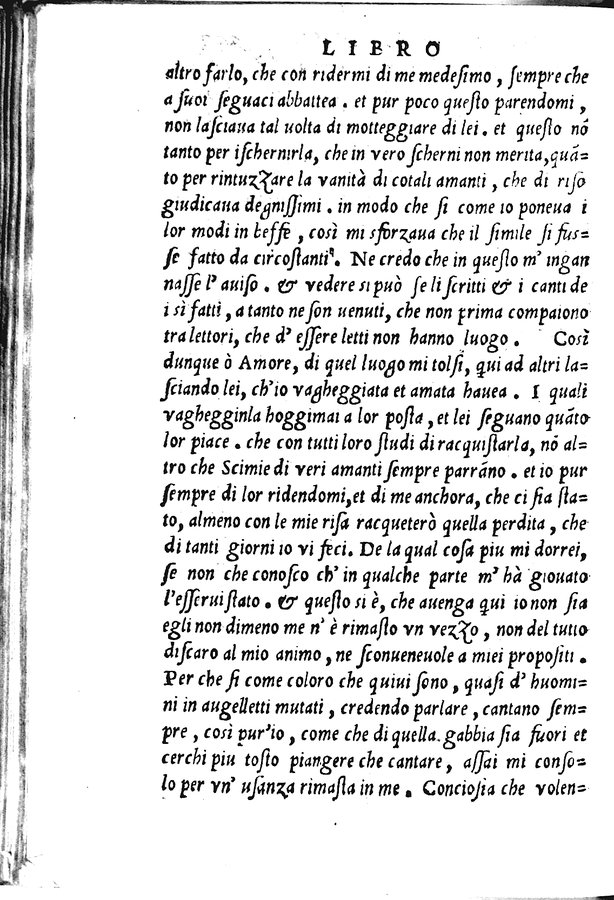 LIBRO
altro farlo, che con ridermi di me medesimo, sempre che
a suoi seguaci abbattea. et pur poco questo parendomi,
non lasciaua tal uolta di motteggiare di lei. et questo nõ
tanto per ischernirla, che in vero scherni non merita, quã=
to per rintuzzare la vanità di cotali amanti, che di riso
giudicaua degnissimi. in modo che si come io poneua i
lor modi in beffe, così mi sforzaua che il simile si fus=
se fatto da circostanti. Ne credo che in questo m' ingan
nasse l' auiso. & vedere si può se li scritti & i canti de
i sì fatti, a tanto ne son uenuti, che non prima compaiono
tra lettori, che d' essere letti non hanno luogo. Così
dunque ò Amore, di quel luogo mi tolsi, qui ad altri la=
sciando lei, ch'io vagheggiata et amata hauea. I quali
vagheggінla hoggimai a lor posta, et lei seguano quãto
lor piace. che con tutti loro studi di racquistarla, nõ al=
tro che Scimie di veri amanti sempre parrãno. et io pur
sempre di lor ridendomi, et di me anchora, che ci sia sta=
to, almeno con le mie risa racqueterò quella perdita, che
di tanti giorni io vi feci. De la qual cosa piu mi dorrei,
se non che conosco ch' in qualche parte m' hà giouato
l'esserui stato. & questo si è, che auenga qui io non sia
egli non dimeno me n' è rimasto vn vezzo, non del tutto
discaro al mio animo, ne sconueneuole a miei propositi.
Per che si come coloro che quiui sono, quasi d' huomi=
ni in augelletti mutati, credendo parlare, cantano sem=
pre, così pur'io, come che di quella gabbia sia fuori et
cerchi piu tosto piangere che cantare, assai mi conso=
lo per vn' usãnza rimasta in me. Conciosia che volen=